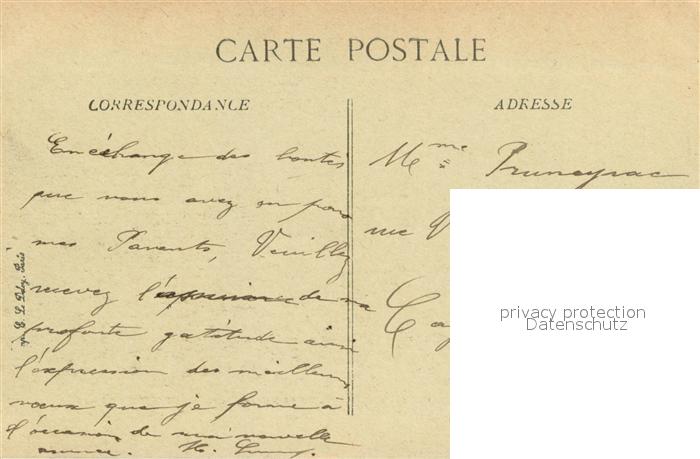 CARTE POSTALE
CORRESPONDANCE
ADRESSE
En échange des bontés
que vous avez eu pour
mes Parents, Veuillez
recevez l'expression de ma
profonte gatitude ainsi
l'expression des meilleurs
voeux que je forme à
l'occasion de
année.
Mme Pruneyrac
rue
privacy protection
Datenschutz